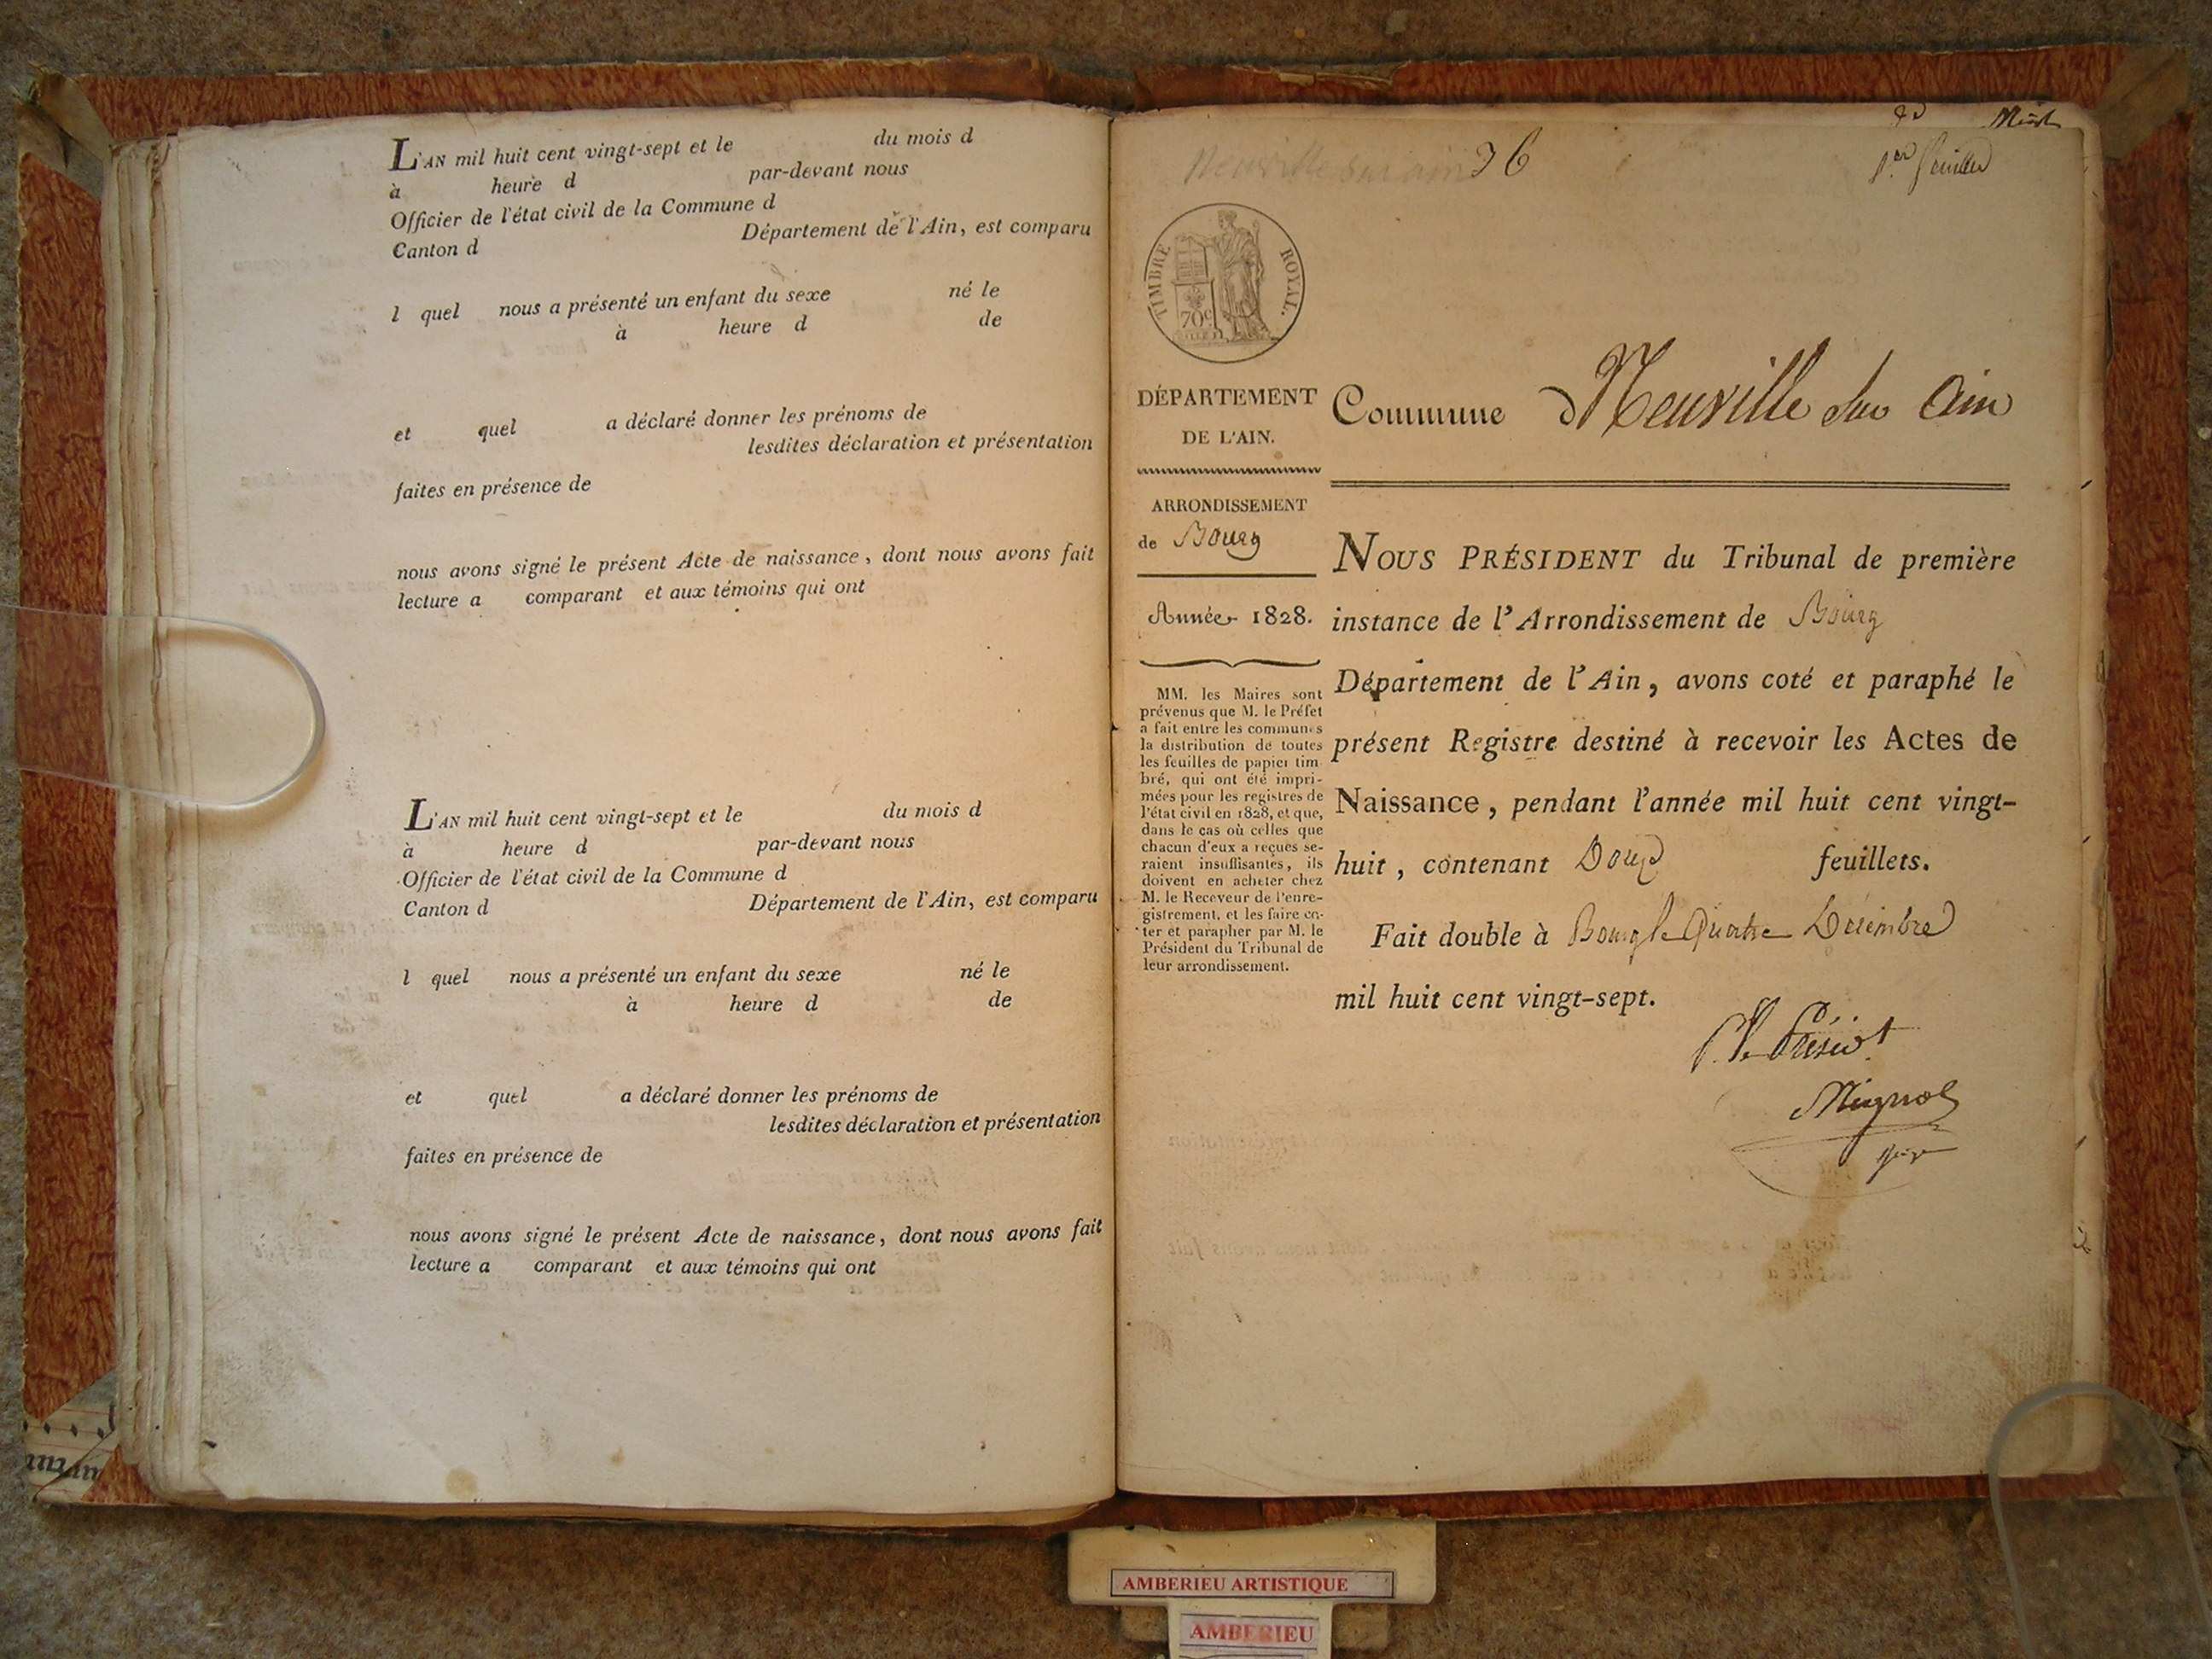 L'AN mil huit cent vingt-sept et le du mois d
à heure d par-devant nous
Officier de l'état civil de la Commune d
Canton d Département de l'Ain, est comparu
l quel nous a présenté un enfant du sexe né le
à heure d de
et quel a déclaré donner les prénoms de
lesdites déclaration et présentation
faites en présence de
nous avons signé le présent Acte de naissance, dont nous avons fait
lecture a comparant et aux témoins qui ont
L'AN mil huit cent vingt-sept et le du mois d
à heure d par-devant nous
Officier de l'état civil de la Commune d
Canton d Département de l'Ain, est comparu
l quel nous a présenté un enfant du sexe né le
à heure d de
et quel a déclaré donner les prénoms de
lesdites déclaration et présentation
faites en présence de
nous avons signé le présent Acte de naissance, dont nous avons fait
lecture a comparant et aux témoins qui ont
Neuville sur ain 36
1.er feuillet
TIMBRE ROYAL.
70c
DÉPARTEMENT
DE L'AIN.
ARRONDISSEMENT
de Bourg
Année 1828.
MM. les Maires sont
prévenus que M. le Préfet
a fait entre les communes
la distribution de toutes
les feuilles de papier tim
bré, qui ont été impri-
mées pour les registres de
l'état civil en 1828, et que,
dans le cas où celles que
chacun d'eux a reçues se-
raient insuffisantes, ils
doivent en acheter chez
M. le Receveur de l'enre-
gistrement, et les faire co-
ter et parapher par M. le
Président du Tribunal de
leur arrondissement.
Commune d Neuville sur Ain
NOUS PRÉSIDENT du Tribunal de première
instance de l'Arrondissement de Bourg
Département de l'Ain, avons coté et paraphé le
présent Registre destiné à recevoir les Actes de
Naissance, pendant l'année mil huit cent vingt-
huit, contenant Douze feuillets.
Fait double à Bourg le Quatre Décembre
mil huit cent vingt-sept.
P. le Présidt
Mignot
AMBERIEU ARTISTIQUE
AMBERIEU